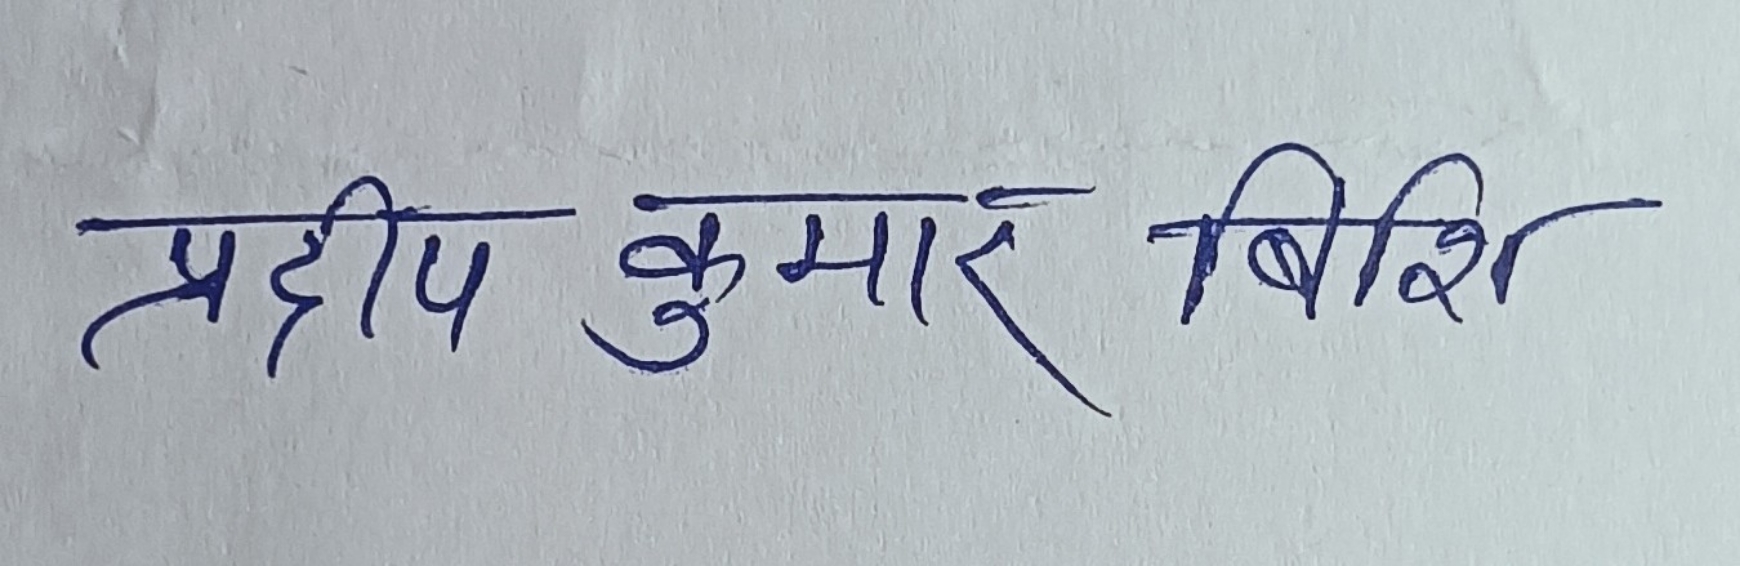 प्रदीप कुमार बिशि